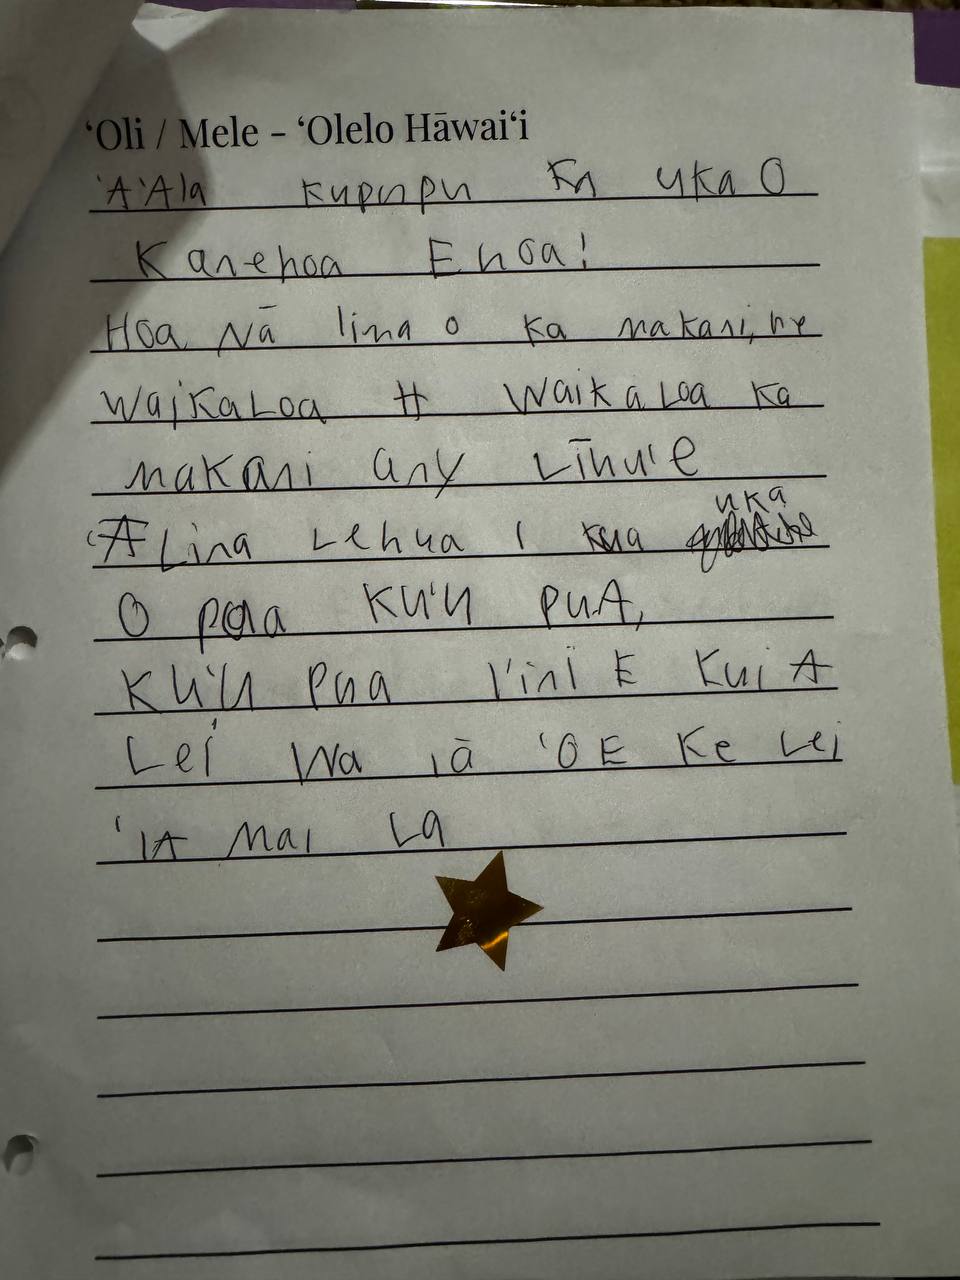 ʻOli / Mele - ʻOlelo Hāwaiʻi
'A'Ala kupupu Ka uka O
Kanehoa E hoa!
Hoa Nā lima o ka makani, he
WaiKaLoa # WaikaLoa ka
makani anu Līhu'e
ALina Lehua i kua uka
O paa Ku'u puA,
Ku'u pua I'ini E Kui A
Lei Wa iā 'OE Ke Lei
'IA Mai La